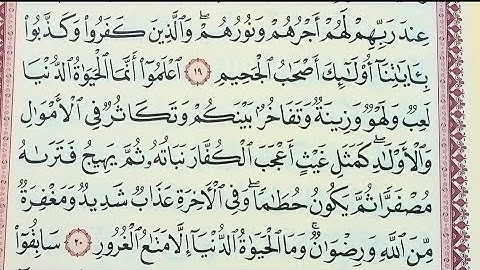 عِندَ رَبِّهِمْ لَهُمْ أَجْرُهُمْ وَنُورُهُمْ ۖ وَٱلَّذِينَ كَفَرُوا۟ وَكَذَّبُوا۟
بِـَٔايَـٰتِنَآ أُو۟لَـٰٓئِكَ أَصْحَـٰبُ ٱلْجَحِيمِ ١٩ ٱعْلَمُوٓا۟ أَنَّمَا ٱلْحَيَوٰةُ ٱلدُّنْيَا
لَعِبٌ وَلَهْوٌ وَزِينَةٌ وَتَفَاخُرٌۢ بَيْنَكُمْ وَتَكَاثُرٌ فِى ٱلْأَمْوَٰلِ
وَٱلْأَوْلَـٰدِ ۖ كَمَثَلِ غَيْثٍ أَعْجَبَ ٱلْكُفَّارَ نَبَاتُهُۥ ثُمَّ يَهِيجُ فَتَرَىٰهُ
مُصْفَرًّا ثُمَّ يَكُونُ حُطَـٰمًا ۖ وَفِى ٱلْـَٔاخِرَةِ عَذَابٌ شَدِيدٌ وَمَغْفِرَةٌ
مِّنَ ٱللَّهِ وَرِضْوَٰنٌ ۚ وَمَا ٱلْحَيَوٰةُ ٱلدُّنْيَآ إِلَّا مَتَـٰعُ ٱلْغُرُورِ ٢٠ سَابِقُوٓا۟